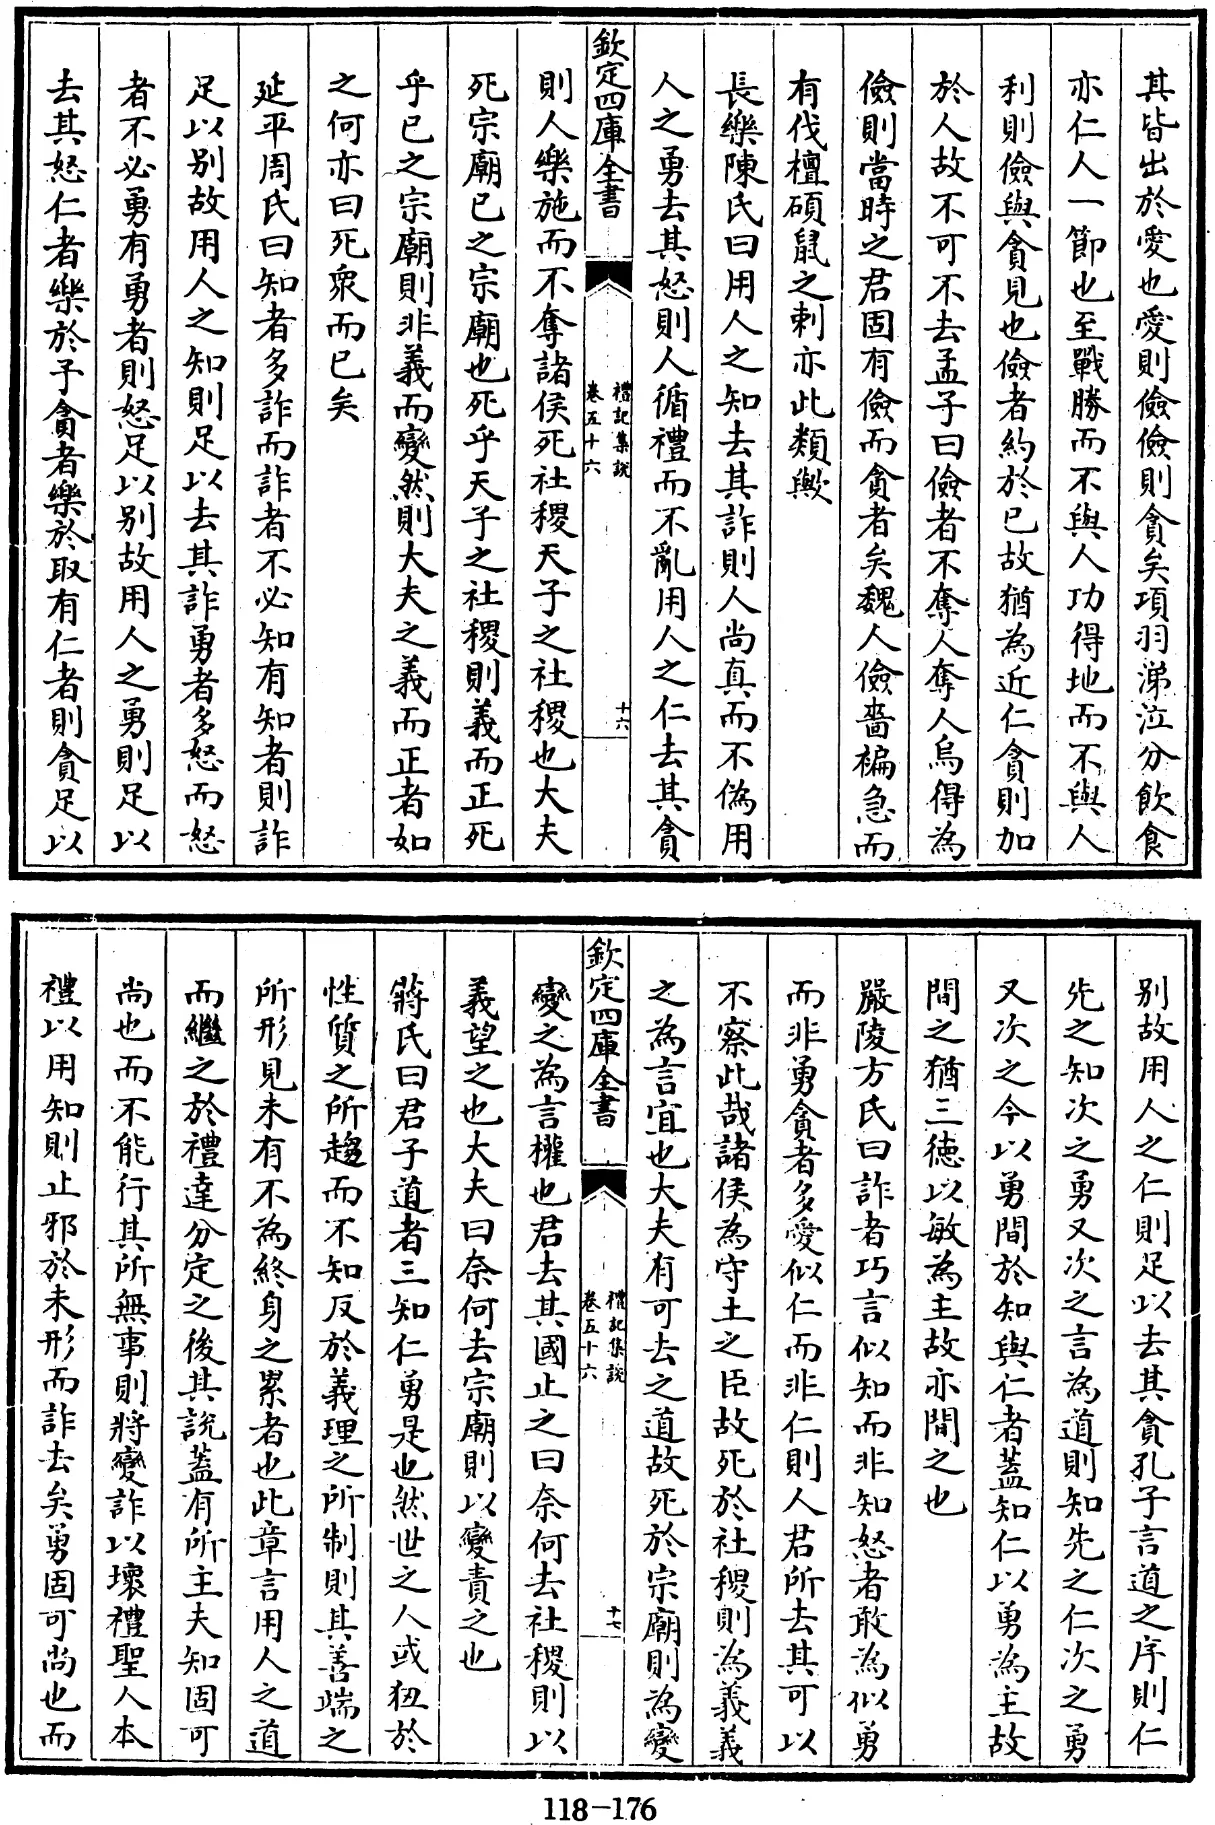 其皆出於愛也愛則儉儉則貪矣項羽涕泣分飲食
亦仁人一節也至戰勝而不與人功得地而不與人
利則儉與貪見也儉者約於已故猶為近仁貪則加
於人故不可不去孟子曰儉者不奪人奪人烏得為
儉則當時之君固有儉而貪者矣魏人儉嗇褊急而
有伐檀碩鼠之刺亦此類歟
長樂陳氏曰用人之知去其詐則人尚真而不偽用
人之勇去其怒則人循禮而不亂用人之仁去其貪
欽定四庫全書
禮記集說
卷五十六
十六
則人樂施而不奪諸侯死社稷天子之社稷也大夫
死宗廟已之宗廟也死乎天子之社稷則義而正死
乎已之宗廟則非義而變然則大夫之義而正者如
之何亦曰死衆而已矣
延平周氏曰知者多詐而詐者不必知有知者則詐
足以別故用人之知則足以去其詐勇者多怒而怒
者不必勇有勇者則怒足以別故用人之勇則足以
去其怒仁者樂於予貪者樂於取有仁者則貪足以
別故用人之仁則足以去其貪孔子言道之序則仁
先之知次之勇又次之言為道則知先之仁次之勇
又次之今以勇間於知與仁者蓋知仁以勇為主故
間之猶三德以敏為主故亦間之也
嚴陵方氏曰詐者巧言似知而非知怒者敢為似勇
而非勇貪者多愛似仁而非仁則人君所去其可以
不察此哉諸侯為守土之臣故死於社稷則為義義
之為言宜也大夫有可去之道故死於宗廟則為變
欽定四庫全書
禮記集說
卷五十六
十七
變之為言權也君去其國止之曰奈何去社稷則以
義望之也大夫曰奈何去宗廟則以變責之也
蔣氏曰君子道者三知仁勇是也然世之人或狃於
性質之所趨而不知反於義理之所制則其善端之
所形見未有不為終身之累者也此章言用人之道
而繼之於禮達分定之後其說蓋有所主夫知固可
尚也而不能行其所無事則將變詐以壞禮聖人本
禮以用知則止邪於未形而詐去矣勇固可尚也而
118-176